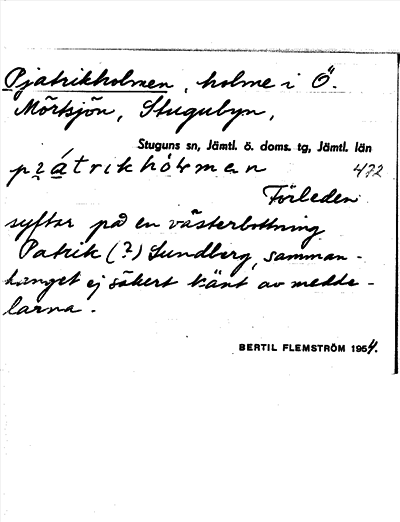 Pjatrikholmen, holme i Ö.
Mörtsjön, Stugubyn,
Stuguns sn, Jämtl. ö. doms. tg, Jämtl. län
472
Förleden
syftar på en västerbottning
Patrik (?) Lundberg, samman-
hanget ej säkert känt av medde-
larna.
BERTIL FLEMSTRÖM 1954.